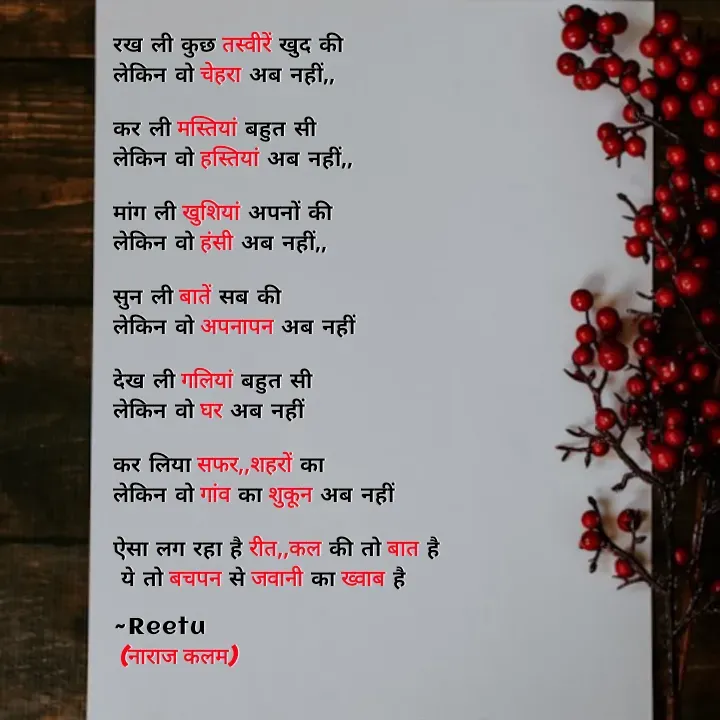 रख ली कुछ तस्वीरें खुद की
लेकिन वो चेहरा अब नहीं,,
कर ली मस्तियां बहुत सी
लेकिन वो हस्तियां अब नहीं,,
मांग ली खुशियां अपनों की
लेकिन वो हंसी अब नहीं,,
सुन ली बातें सब की
लेकिन वो अपनापन अब नहीं
देख ली गलियां बहुत सी
लेकिन वो घर अब नहीं
कर लिया सफर,,शहरों का
लेकिन वो गांव का शुकून अब नहीं
ऐसा लग रहा है रीत,,कल की तो बात है
ये तो बचपन से जवानी का ख्वाब है
~Reetu
(नाराज कलम)